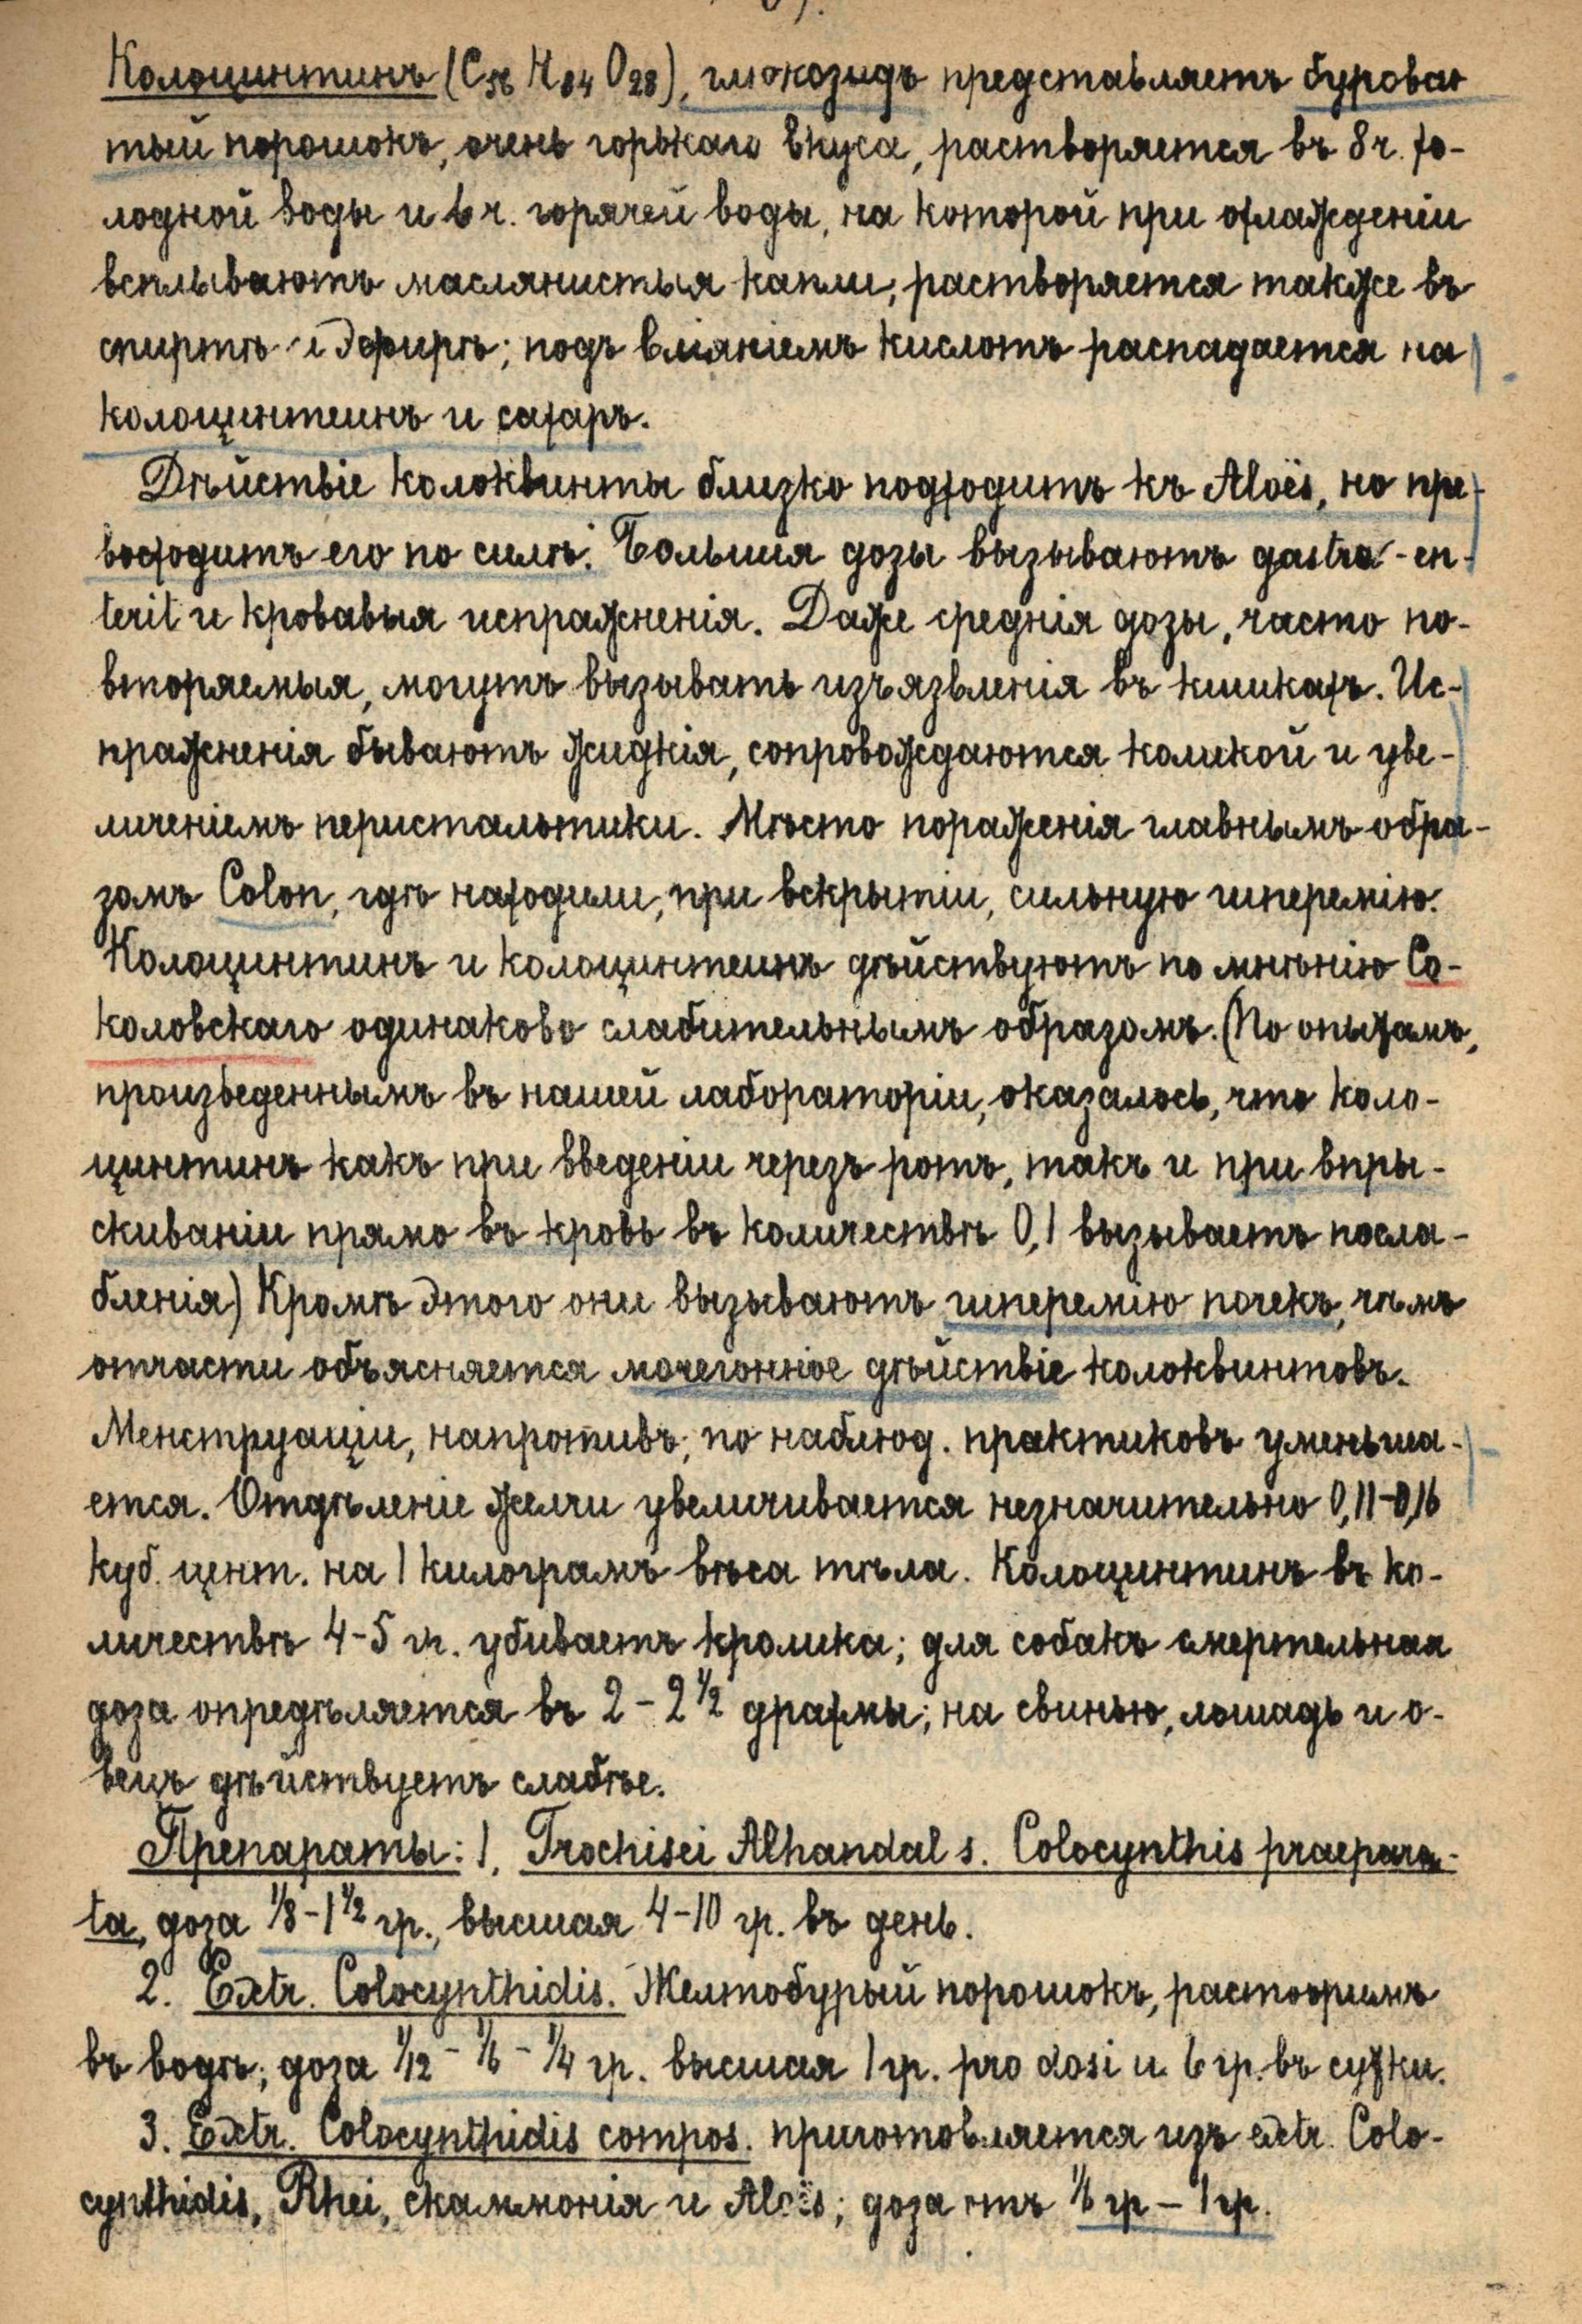 Колоцинтинъ (C56 H84 O28), глюкозидъ представляетъ бурова-
тый порошокъ, очень горькаго вкуса, растворяется въ 8 ч. хо-
лодной воды и 6 ч. горячей воды, на которой при охлажденіи
всплываютъ маслянистыя капли; растворяется также въ
спиртѣ и эфирѣ; подъ вліяніемъ кислотъ распадается на
колоцинтеинъ и сахаръ.
Дѣйствіе колоквинты близко подходитъ къ Aloës, но пре-
восходитъ его по силѣ. Большія дозы вызываютъ gastro-en-
terit и кровавыя испражненія. Даже среднія дозы, часто по-
вторяемыя, могутъ вызывать изъязвленія въ кишкахъ. Ис-
пражненія бываютъ жидкія, сопровождаются коликой и уве-
личеніемъ перистальтики. Мѣсто пораженія главнымъ обра-
зомъ Colon, гдѣ находили, при вскрытіи, сильную гиперемію.
Колоцинтинъ и колоцинтеинъ дѣйствуютъ по мнѣнію Со-
коловскаго одинаково слабительнымъ образомъ. (По опытамъ,
произведеннымъ въ нашей лабораторіи, оказалось, что коло-
цинтинъ какъ при введеніи черезъ ротъ, такъ и при впры-
скиваніи прямо въ кровь въ количествѣ 0,1 вызываетъ посла-
бленія) Кромѣ этого они вызываютъ гиперемію почекъ, чѣмъ
отчасти объясняется мочегонное дѣйствіе колоквинтовъ.
Менструаціи, напротивъ, по наблюд. практиковъ уменьша-
ется. Отдѣленіе желчи увеличивается незначительно 0,11-0,16
куб. цент. на 1 килограмъ вѣса тѣла. Колоцинтинъ въ ко-
личествѣ 4-5 гр. убиваетъ кролика; для собакъ смертельная
доза опредѣляется въ 2 - 2 1/2 драхмы; на свинью, лошадь и о-
вецъ дѣйствуетъ слабѣе.
Препараты: 1. Trochisci Alhandal s. Colocynthis praepara-
ta, доза 1/8 - 1 1/2 гр., высшая 4-10 гр. въ день.
2. Extr. Colocynthidis. Желтобурый порошокъ, растворимъ
въ водѣ; доза 1/12 - 1/6 - 1/4 гр. высшая 1 гр. pro dosi и 6 гр. въ сутки.
3. Extr. Colocynthidis compos. приготовляется изъ extr. Colo-
cynthidis, Rhei, скаммонія и Aloës; доза отъ 1/6 гр - 1 гр.